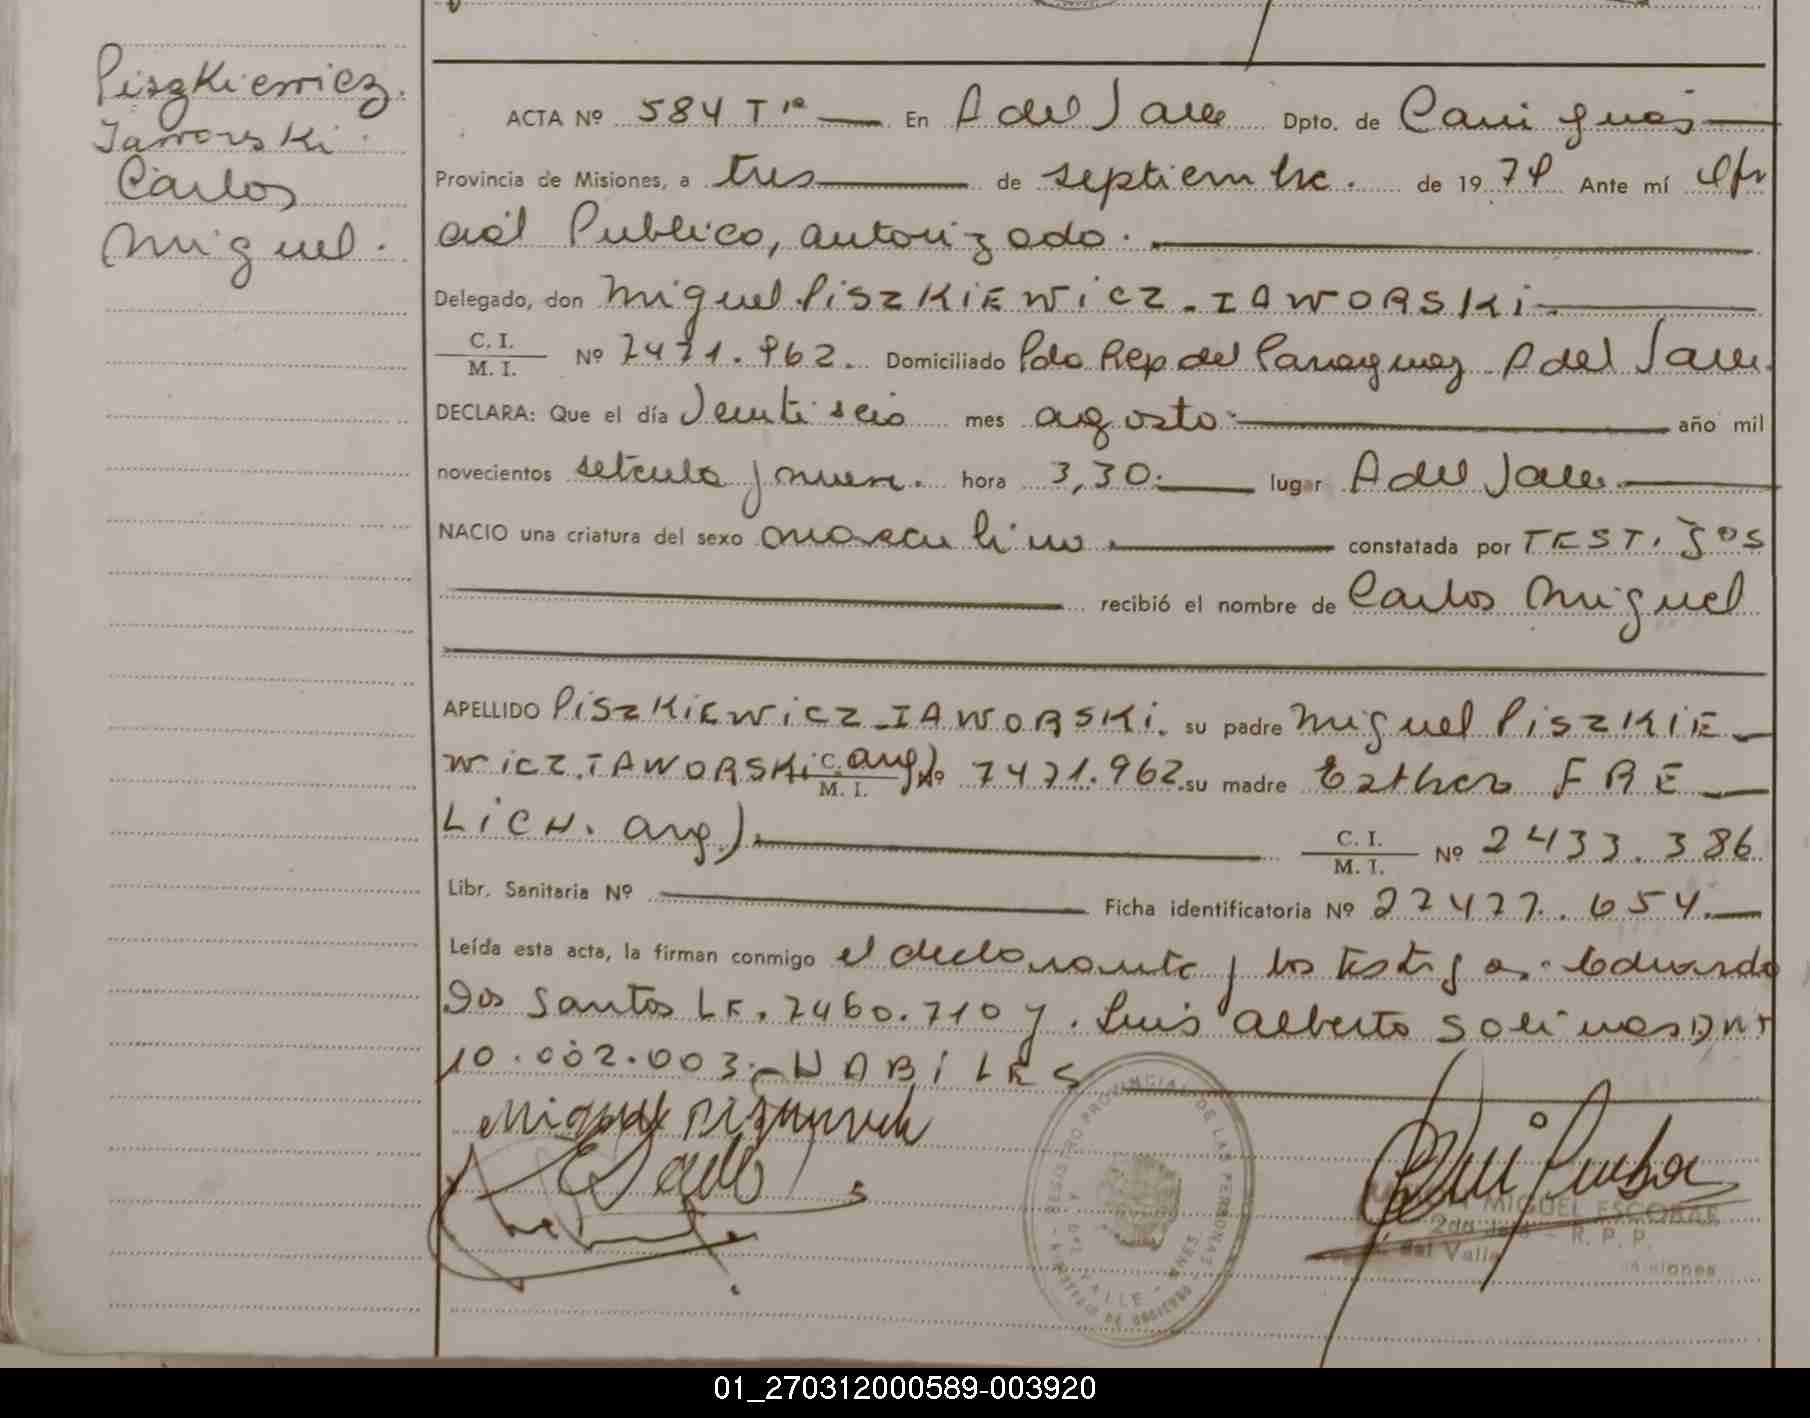 Piszkiewicz.
Iaworski.
Carlos
Miguel.
ACTA Nº 584 Tº En A del Valle Dpto. de Cainguás
Provincia de Misiones, a tres de septiembre. de 1979 Ante mí Ofi
cial Publico, autorizado.
Delegado, don Miguel PiSZKiEWiCZ. IAWORSKi
C. I.
M. I.
Nº 7471.962. Domiciliado Pdo Rep del Paraguay A del Valle.
DECLARA: Que el día Veintiseis mes agosto. año mil
novecientos setenta y nueve. hora 3,30. lugar A del Valle.
NACIO una criatura del sexo masculino. constatada por TESTigos
recibió el nombre de Carlos Miguel
APELLIDO PiSZKiEWiCZ-IAWORSKi. su padre Miguel PiSZKIE-
WiCZ.IAWORSKi arg) C. I. M. I. Nº 7471.962. su madre Esther FRE-
LiCH. arg). C. I. M. I. Nº 2433.386
Libr. Sanitaria Nº Ficha identificatoria Nº 27477.654.
Leída esta acta, la firman conmigo el declarante y los testigos. Eduardo
Dos Santos LE. 7460.710 y. Luis Alberto Solinas DNI
10.002.003.- HABiLES
REGISTRO PROVINCIAL DE LAS PERSONAS
MINISTERIO DE GOBIERNO
VALLE - MNES.
MIGUEL ESCOBAR
2da - R. P. P.
del Valle
Misiones
01_270312000589-003920